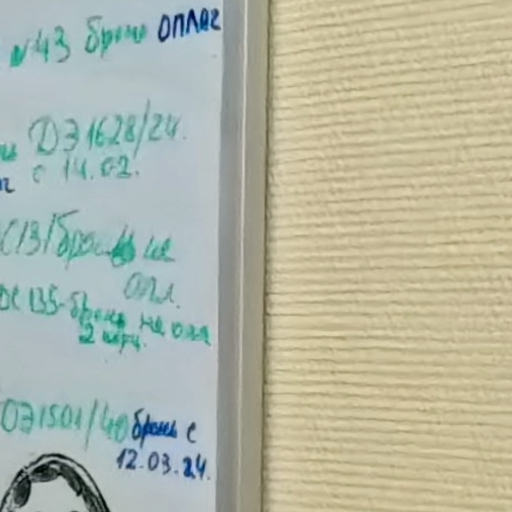 N43 бронь оплаг
ДЭ1628/24.
с 14.02.
С131бронь не
опл.
ОС 135-бронь не опл
2 корп.
ОЭ1501/40 бронь с
12.03.24.